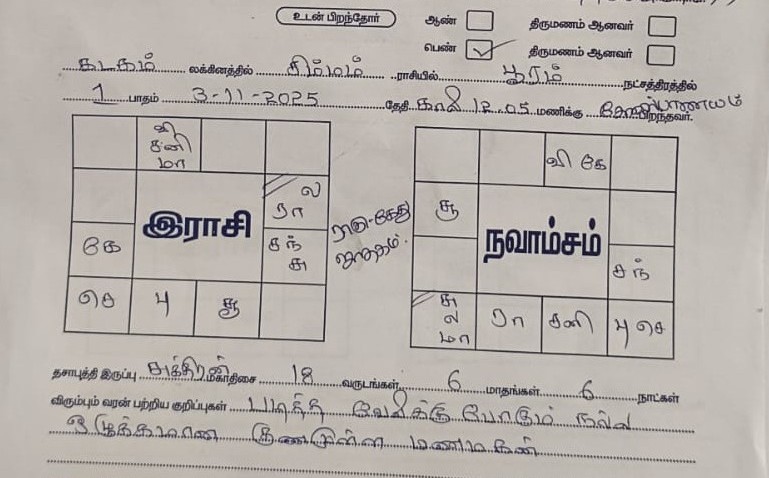 உடன் பிறந்தோர் ஆண் திருமணம் ஆனவர்
பெண் திருமணம் ஆனவர்
கடகம் லக்கினத்தில் சிம்மம் ராசியில் பூரம் நட்சத்திரத்தில்
1 பாதம் 3-11-2025 தேதி காலை 12.05 மணிக்கு பிறந்தவர்.
வி
சனி
மா
ல
ரா
இராசி
கே
சந்
சு
செ பு சூ
ராகு-கேது
ஜாதகம்.
வி கே
சூ
நவாம்சம்
சந்
சு
ல
மா
ரா சனி பு செ
தசாபுத்தி இருப்பு சுக்கிரன் மகாதிசை 18 வருடங்கள் 6 மாதங்கள் 6 நாட்கள்
விரும்பும் வரன் பற்றிய குறிப்புகள் படித்த வேலைக்கு போகும் நல்ல
ஒழுக்கமான குணமுள்ள மணமகன்